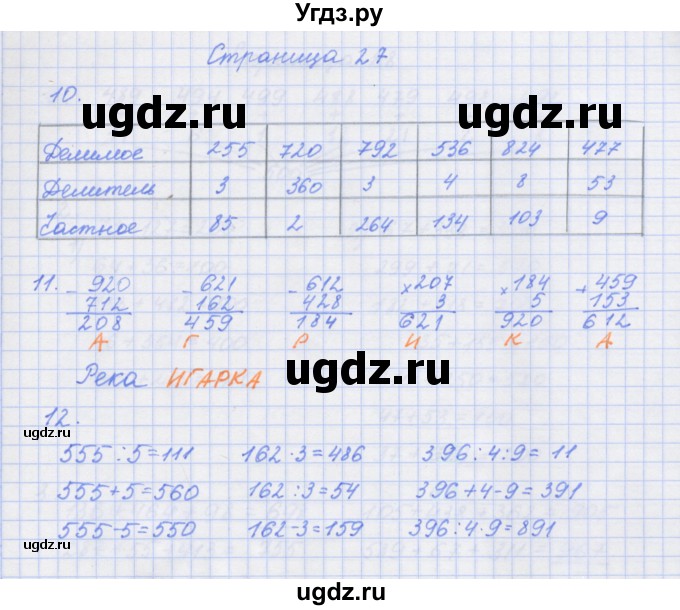 Угдз.ру
Страница 27
10.
ugdz.ru ugdz.ru
Делимое 255 720 792 536 824 477
Делитель 3 360 3 4 8 53
Частное 85 2 264 134 103 9
11. - 920 - 621 - 612 × 207 × 184 + 459
712 162 428 3 5 153
208 459 184 621 920 612
А Г Р И К А
ugdz.ru ugdz.ru
Река ИГАРКА
12.
ugdz.ru
555 : 5 = 111 162 · 3 = 486 396 : 4 : 9 = 11
555 + 5 = 560 162 : 3 = 54 396 + 4 - 9 = 391
555 - 5 = 550 162 - 3 = 159 396 : 4 · 9 = 891
ugdz.ru
ugdz.ru